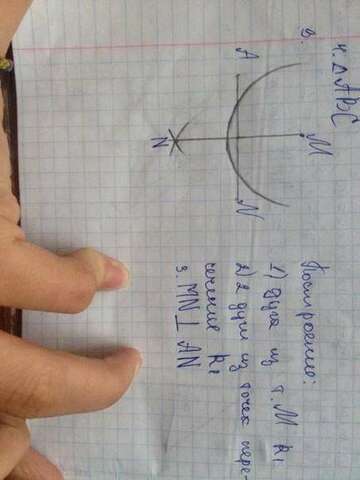 4. △ABC
3.
M
A
N
N
Построение:
1) Дуга из т. M R₁
2) 2 дуги из точек пере-
сечения R₂
3. MN ⊥ AN